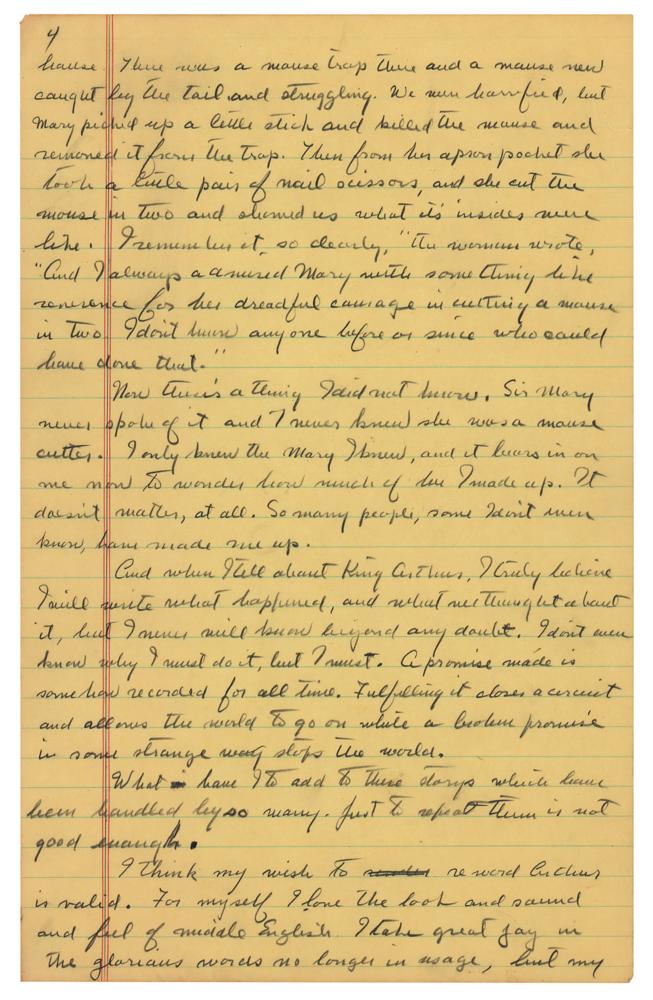 4
house. There was a mouse trap there and a mouse new
caught by the tail and struggling. We were horrified, but
Mary picked up a little stick and killed the mouse and
removed it from the trap. Then from her apron pocket she
took a little pair of nail scissors, and she cut the
mouse in two and showed us what its insides were
like. I remember it, so clearly," the woman wrote,
"And I always admired Mary with something like
reverence for her dreadful courage in cutting a mouse
in two. I don't know anyone before or since who could
have done that."
Now there's a thing I did not know. Sir Mary
never spoke of it and I never knew she was a mouse
cutter. I only knew the Mary I knew, and it bears in on
me now to wonder how much of her I made up. It
doesn't matter, at all. So many people, some I don't even
know, have made me up.
And when I tell about King Arthur, I truly believe
I will write what happened, and what we thought about
it, but I never will know beyond any doubt. I don't even
know why I must do it, but I must. A promise made is
somehow recorded for all time. Fulfilling it closes a circuit
and allows the world to go on while a broken promise
in some strange way stops the world.
What have I to add to these storys which have
been handled by so many. Just to repeat them is not
good enough.
I think my wish to reword Arthur
is valid. For myself I love the look and sound
and feel of middle English. I take great joy in
the glorious words no longer in usage, but my